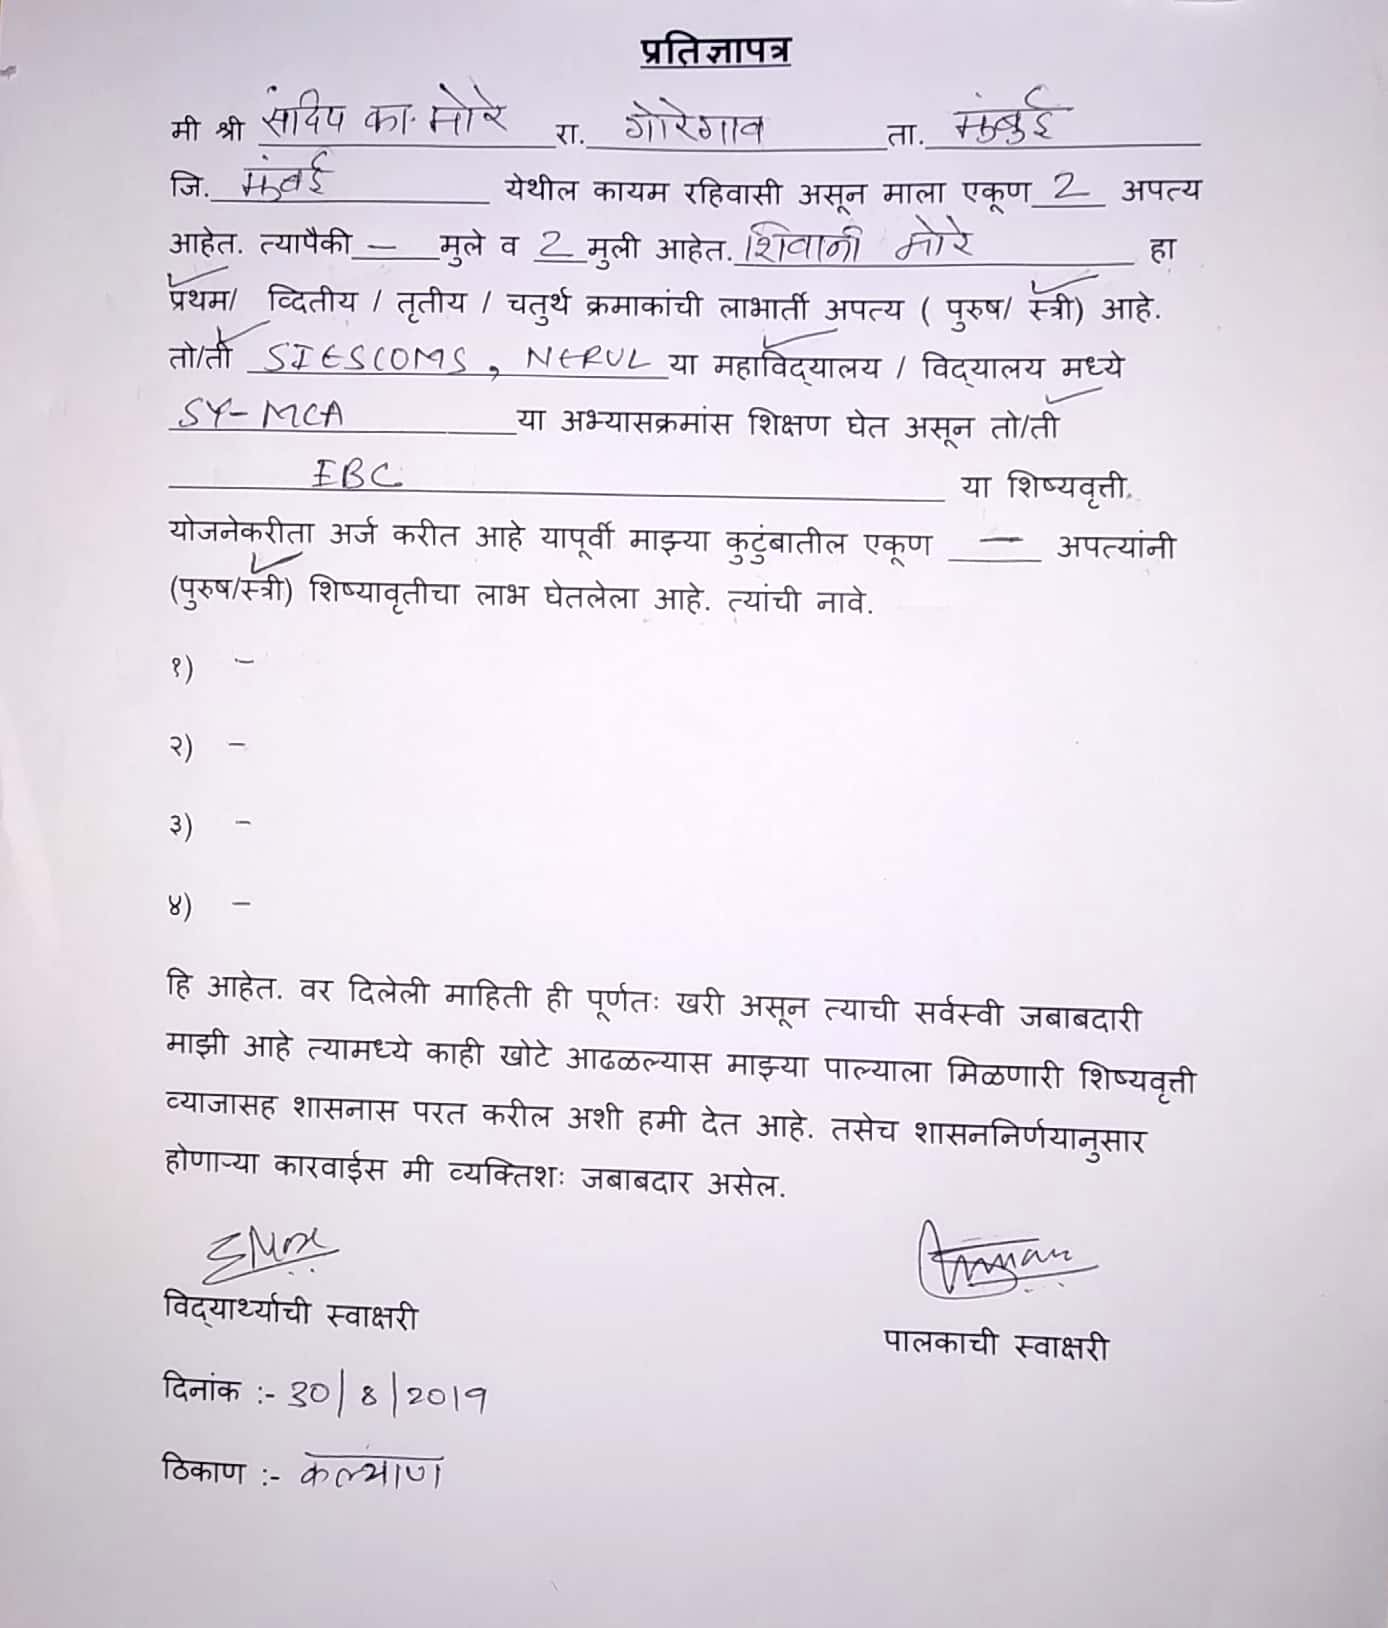 प्रतिज्ञापत्र
मी श्री संदिप का. मोरे रा. गोरेगाव ता. मुंबई
जि. मुंबई येथील कायम रहिवासी असून माला एकूण 2 अपत्य
आहेत. त्यापैकी — मुले व 2 मुली आहेत. शिवानी मोरे हा
प्रथम/ व्दितीय / तृतीय / चतुर्थ क्रमाकांची लाभार्ती अपत्य ( पुरुष/ स्त्री) आहे.
तो/ती SIESCOMS, NERUL या महाविद्यालय / विद्यालय मध्ये
SY-MCA या अभ्यासक्रमांस शिक्षण घेत असून तो/ती
EBC या शिष्यवृत्ती.
योजनेकरीता अर्ज करीत आहे यापूर्वी माझ्या कुटुंबातील एकूण — अपत्यांनी
(पुरुष/स्त्री) शिष्यावृतीचा लाभ घेतलेला आहे. त्यांची नावे.
१) -
२) -
३) -
४) -
हि आहेत. वर दिलेली माहिती ही पूर्णतः खरी असून त्याची सर्वस्वी जबाबदारी
माझी आहे त्यामध्ये काही खोटे आढळल्यास माझ्या पाल्याला मिळणारी शिष्यवृत्ती
व्याजासह शासनास परत करील अशी हमी देत आहे. तसेच शासननिर्णयानुसार
होणाऱ्या कारवाईस मी व्यक्तिशः जबाबदार असेल.
विद्यार्थ्याची स्वाक्षरी
पालकाची स्वाक्षरी
दिनांक :- 30/8/2019
ठिकाण :- कल्याण